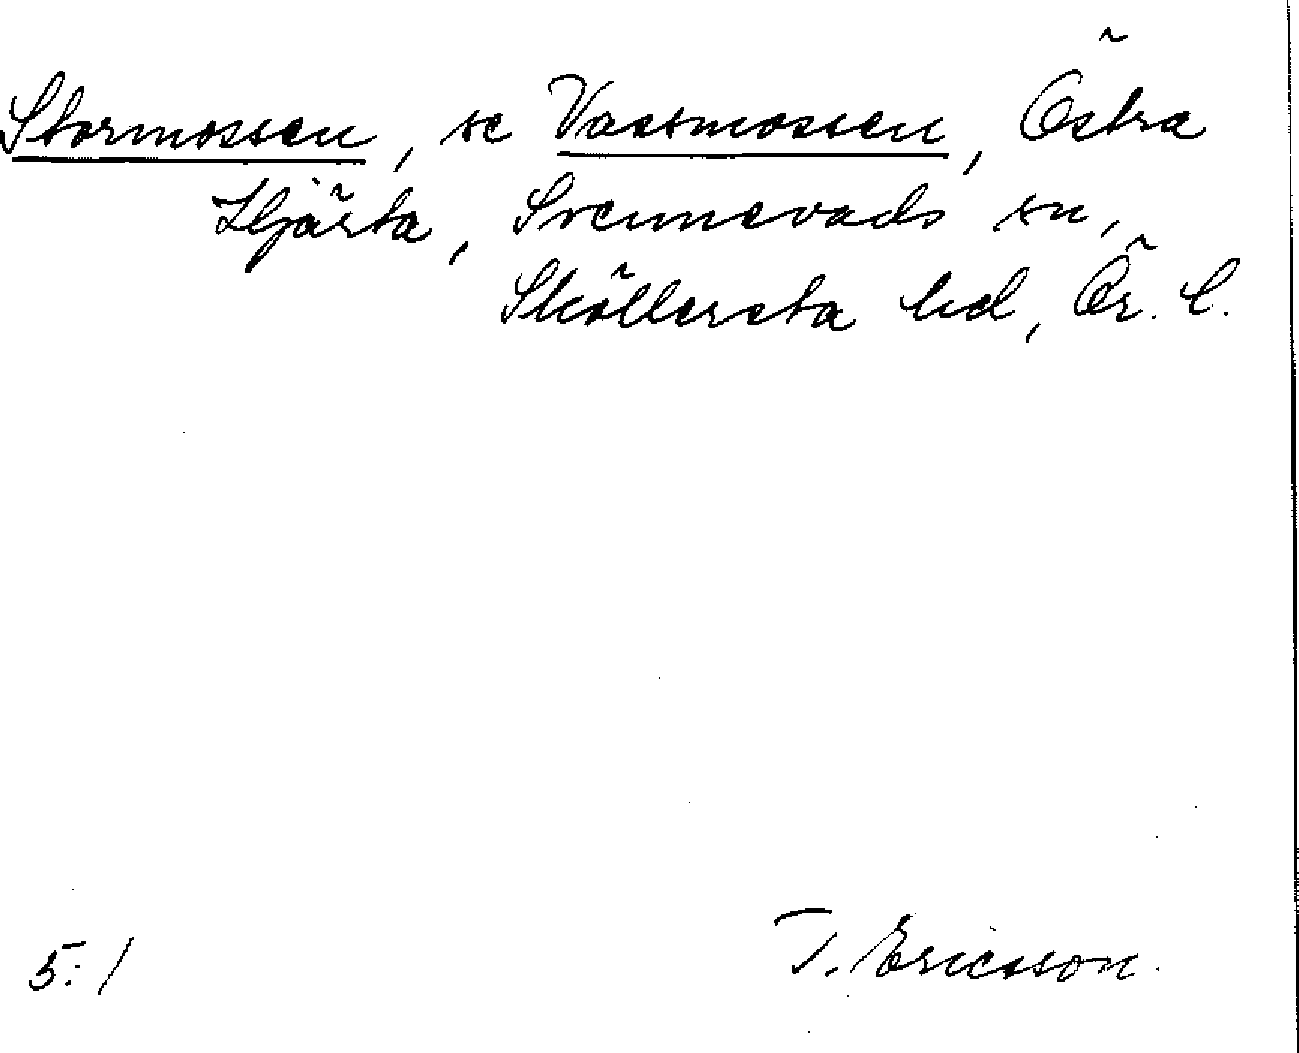 Stormossen, se Vassmossen, Östra
Hjärta, Svennevads sn,
Sköllersta hd, Ör. l.
5:1
T. Ericsson.